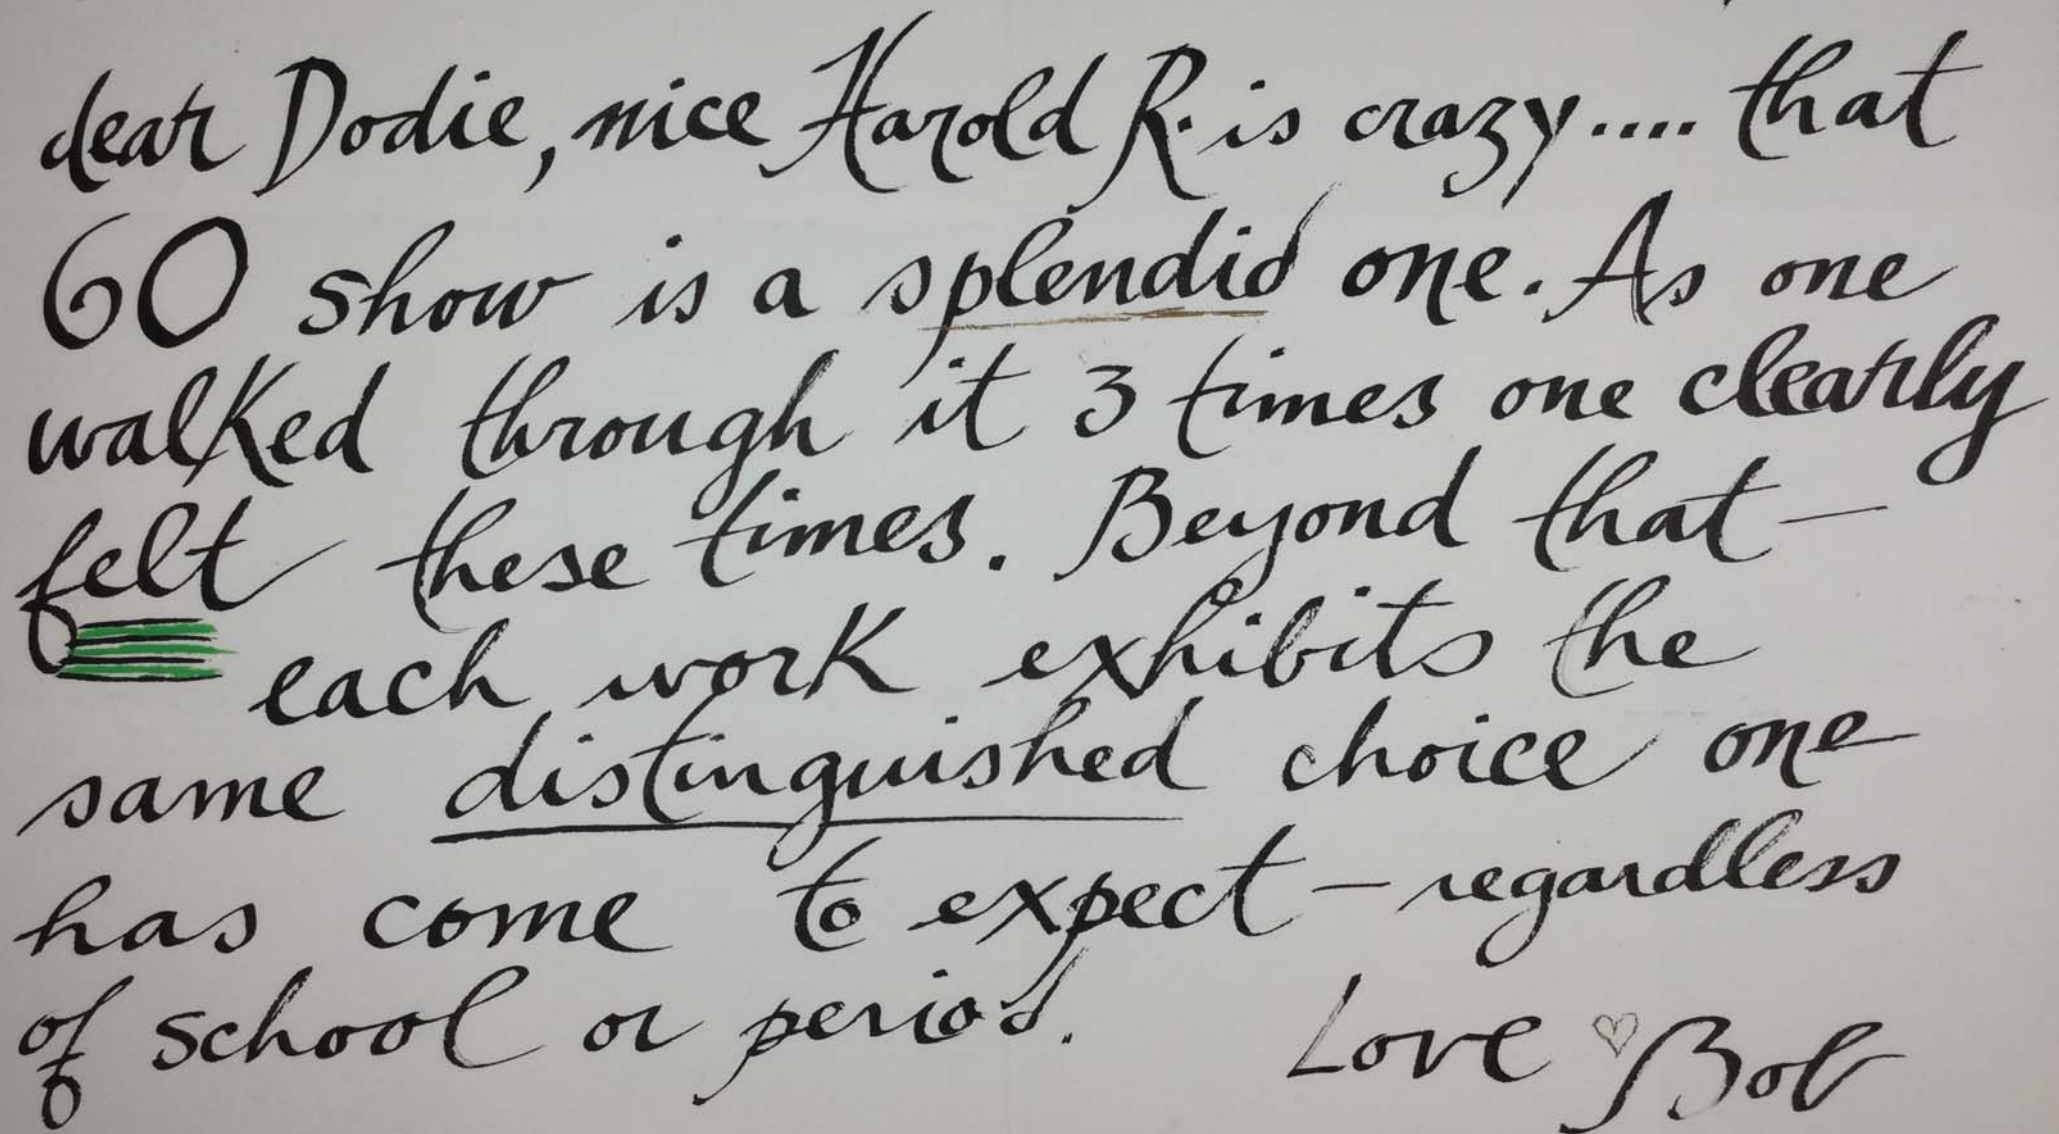 dear Dodie, nice Harold R. is crazy.... that
60 show is a splendid one. As one
walked through it 3 times one clearly
felt these times. Beyond that —
each work exhibits the
same distinguished choice one
has come to expect — regardless
of school or period.
Love ♡ Bob